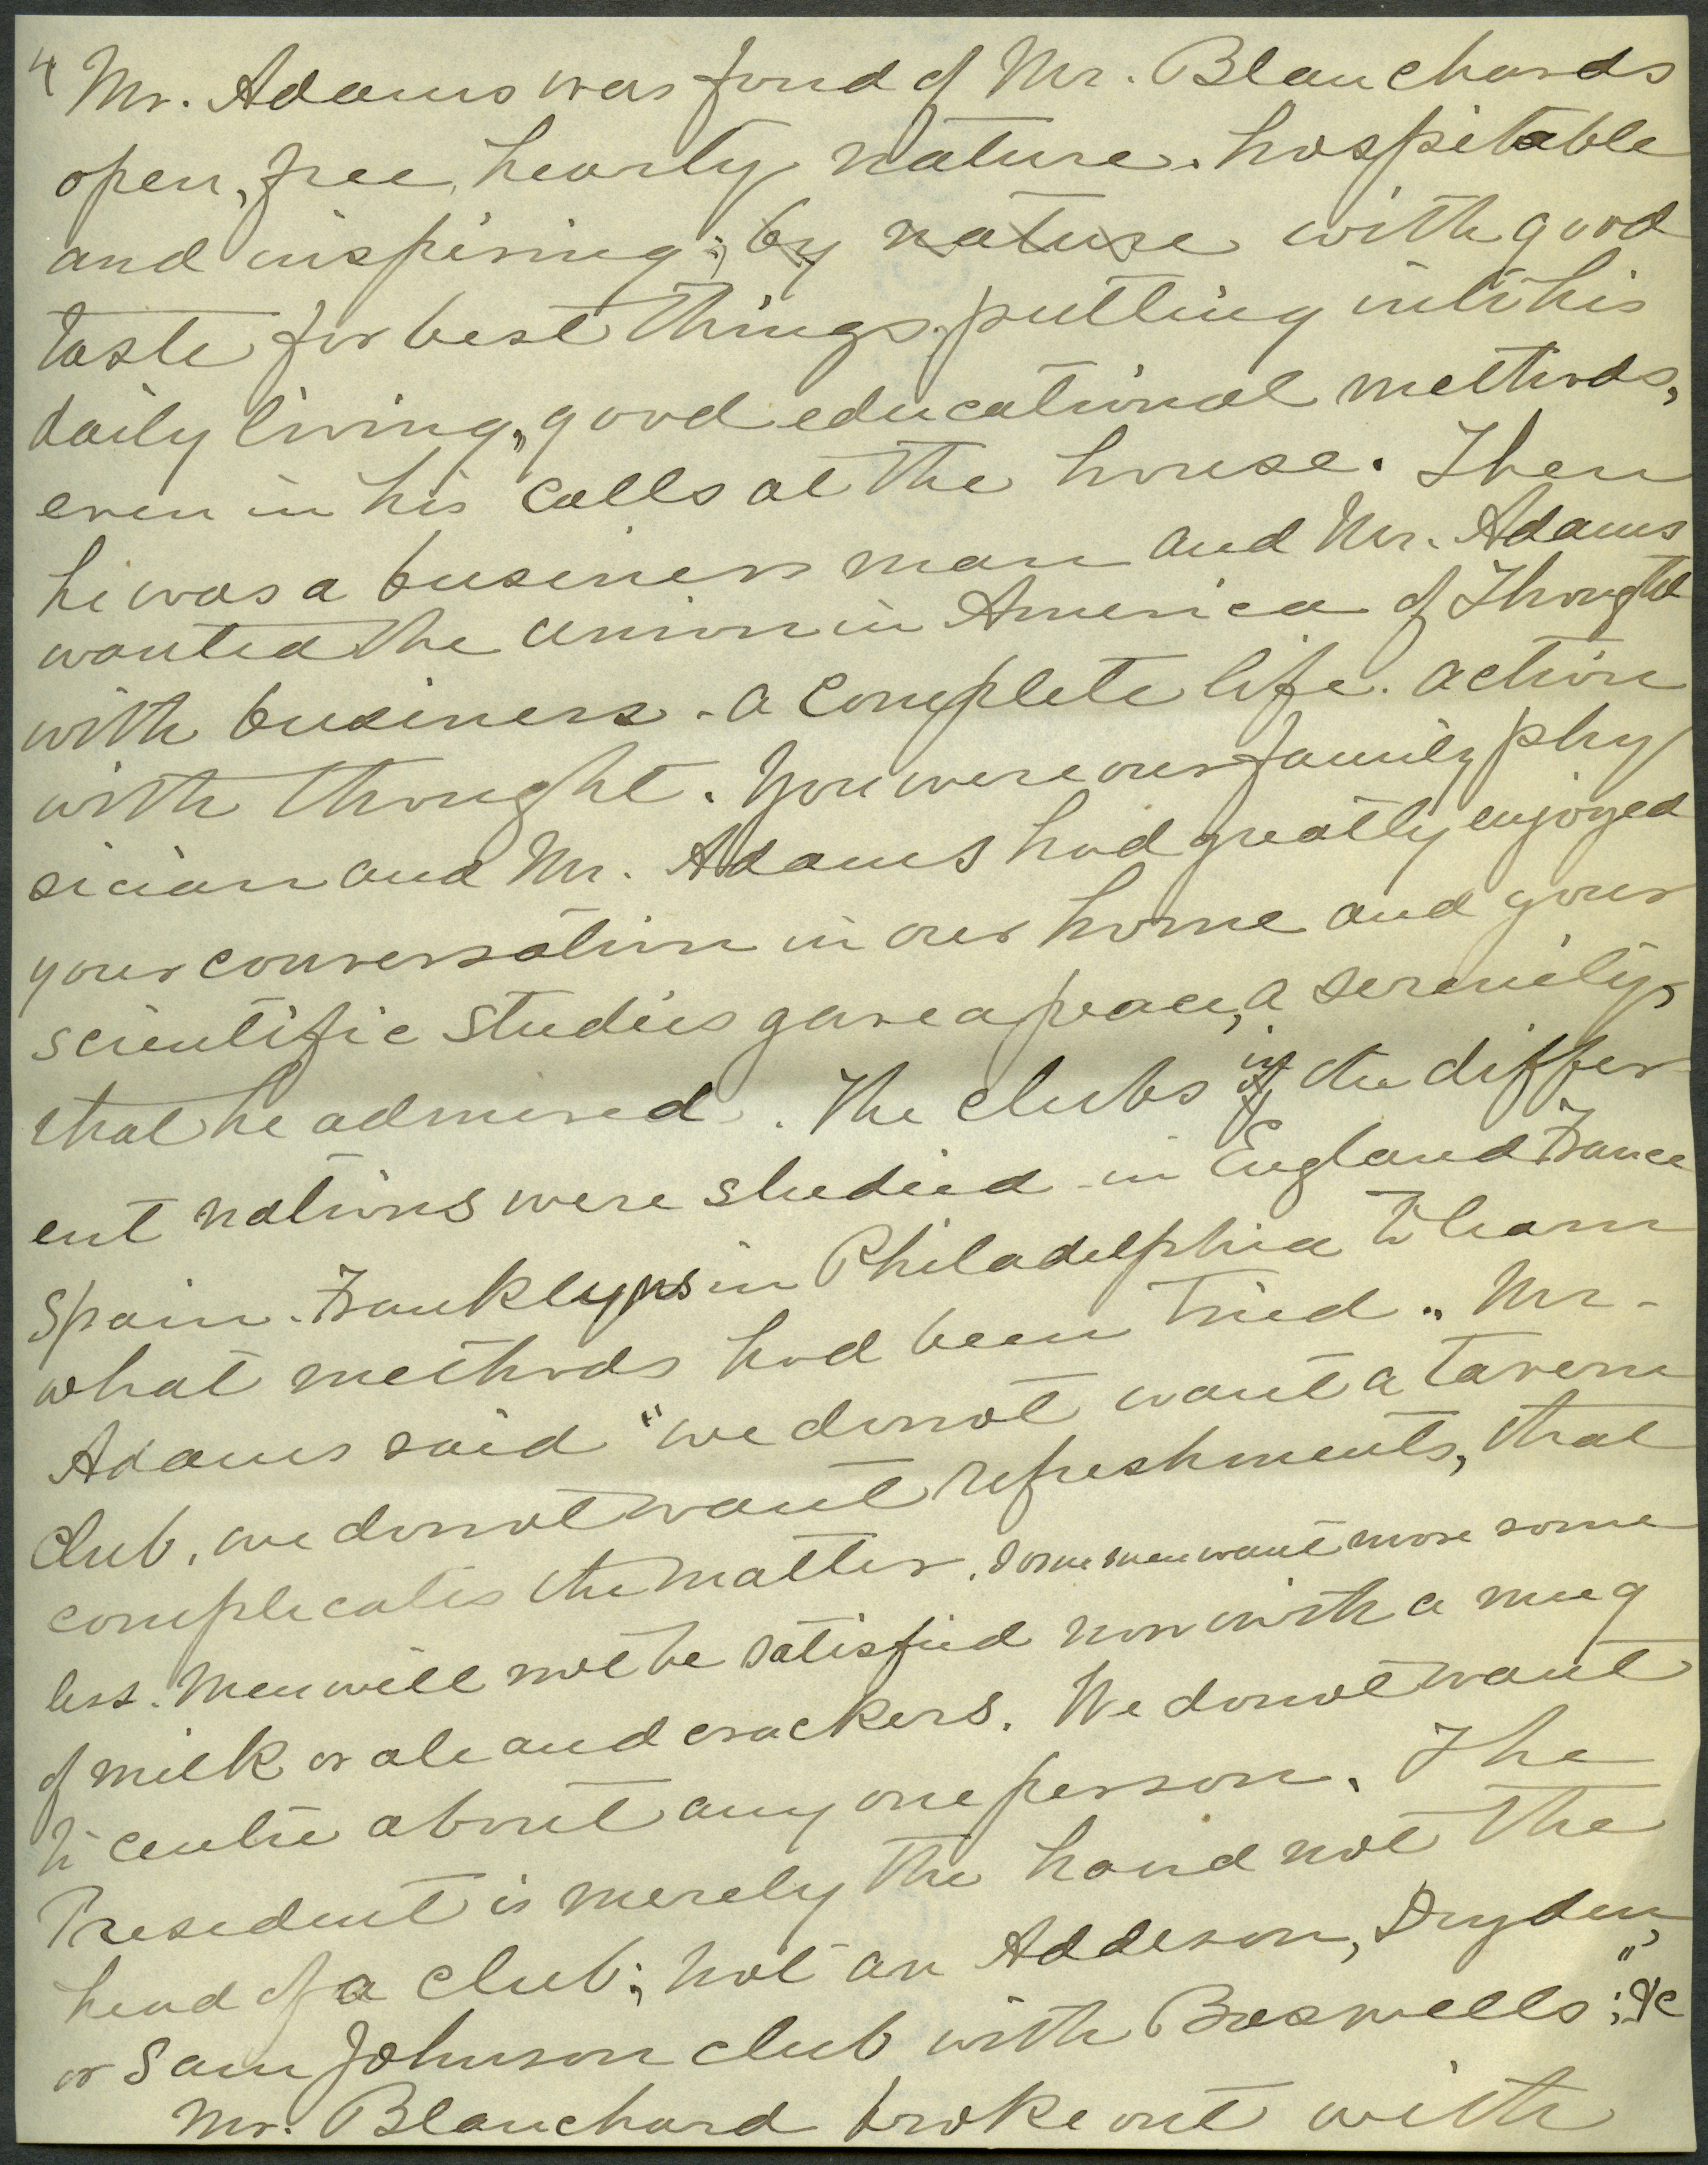 4 Mr. Adams was fond of Mr. Blanchards
open, free, hearty nature. hospitable
and inspiring; by nature with good
taste for best things, putting into his
daily living, good educational methods,
even in his calls at the house. Then
he was a business man and Mr. Adams
wanted the union in America of Thought
with business - a complete life. action
with thought. You were our family phy
sician and Mr. Adams had greatly enjoyed
your conversation in our home and your
scientific studies gave a peace, a serenity,
that he admired. The clubs in of the differ
ent nations were studied - in England France
Spain. Franklyns in Philadelphia to learn
what methods had been tried. Mr.
Adams said "we do not want a tavern
club, we do not want refreshments, that
complicates the matter. Some men want more some
less. Men will not be satisfied now with a mug
of milk or ale and crackers. We do not want
to centre about any one person. The
President is merely the hand not the
head of a club; not an Addison, Dryden,
or Sam Johnson club with Boswells"; &c
Mr. Blanchard broke out with